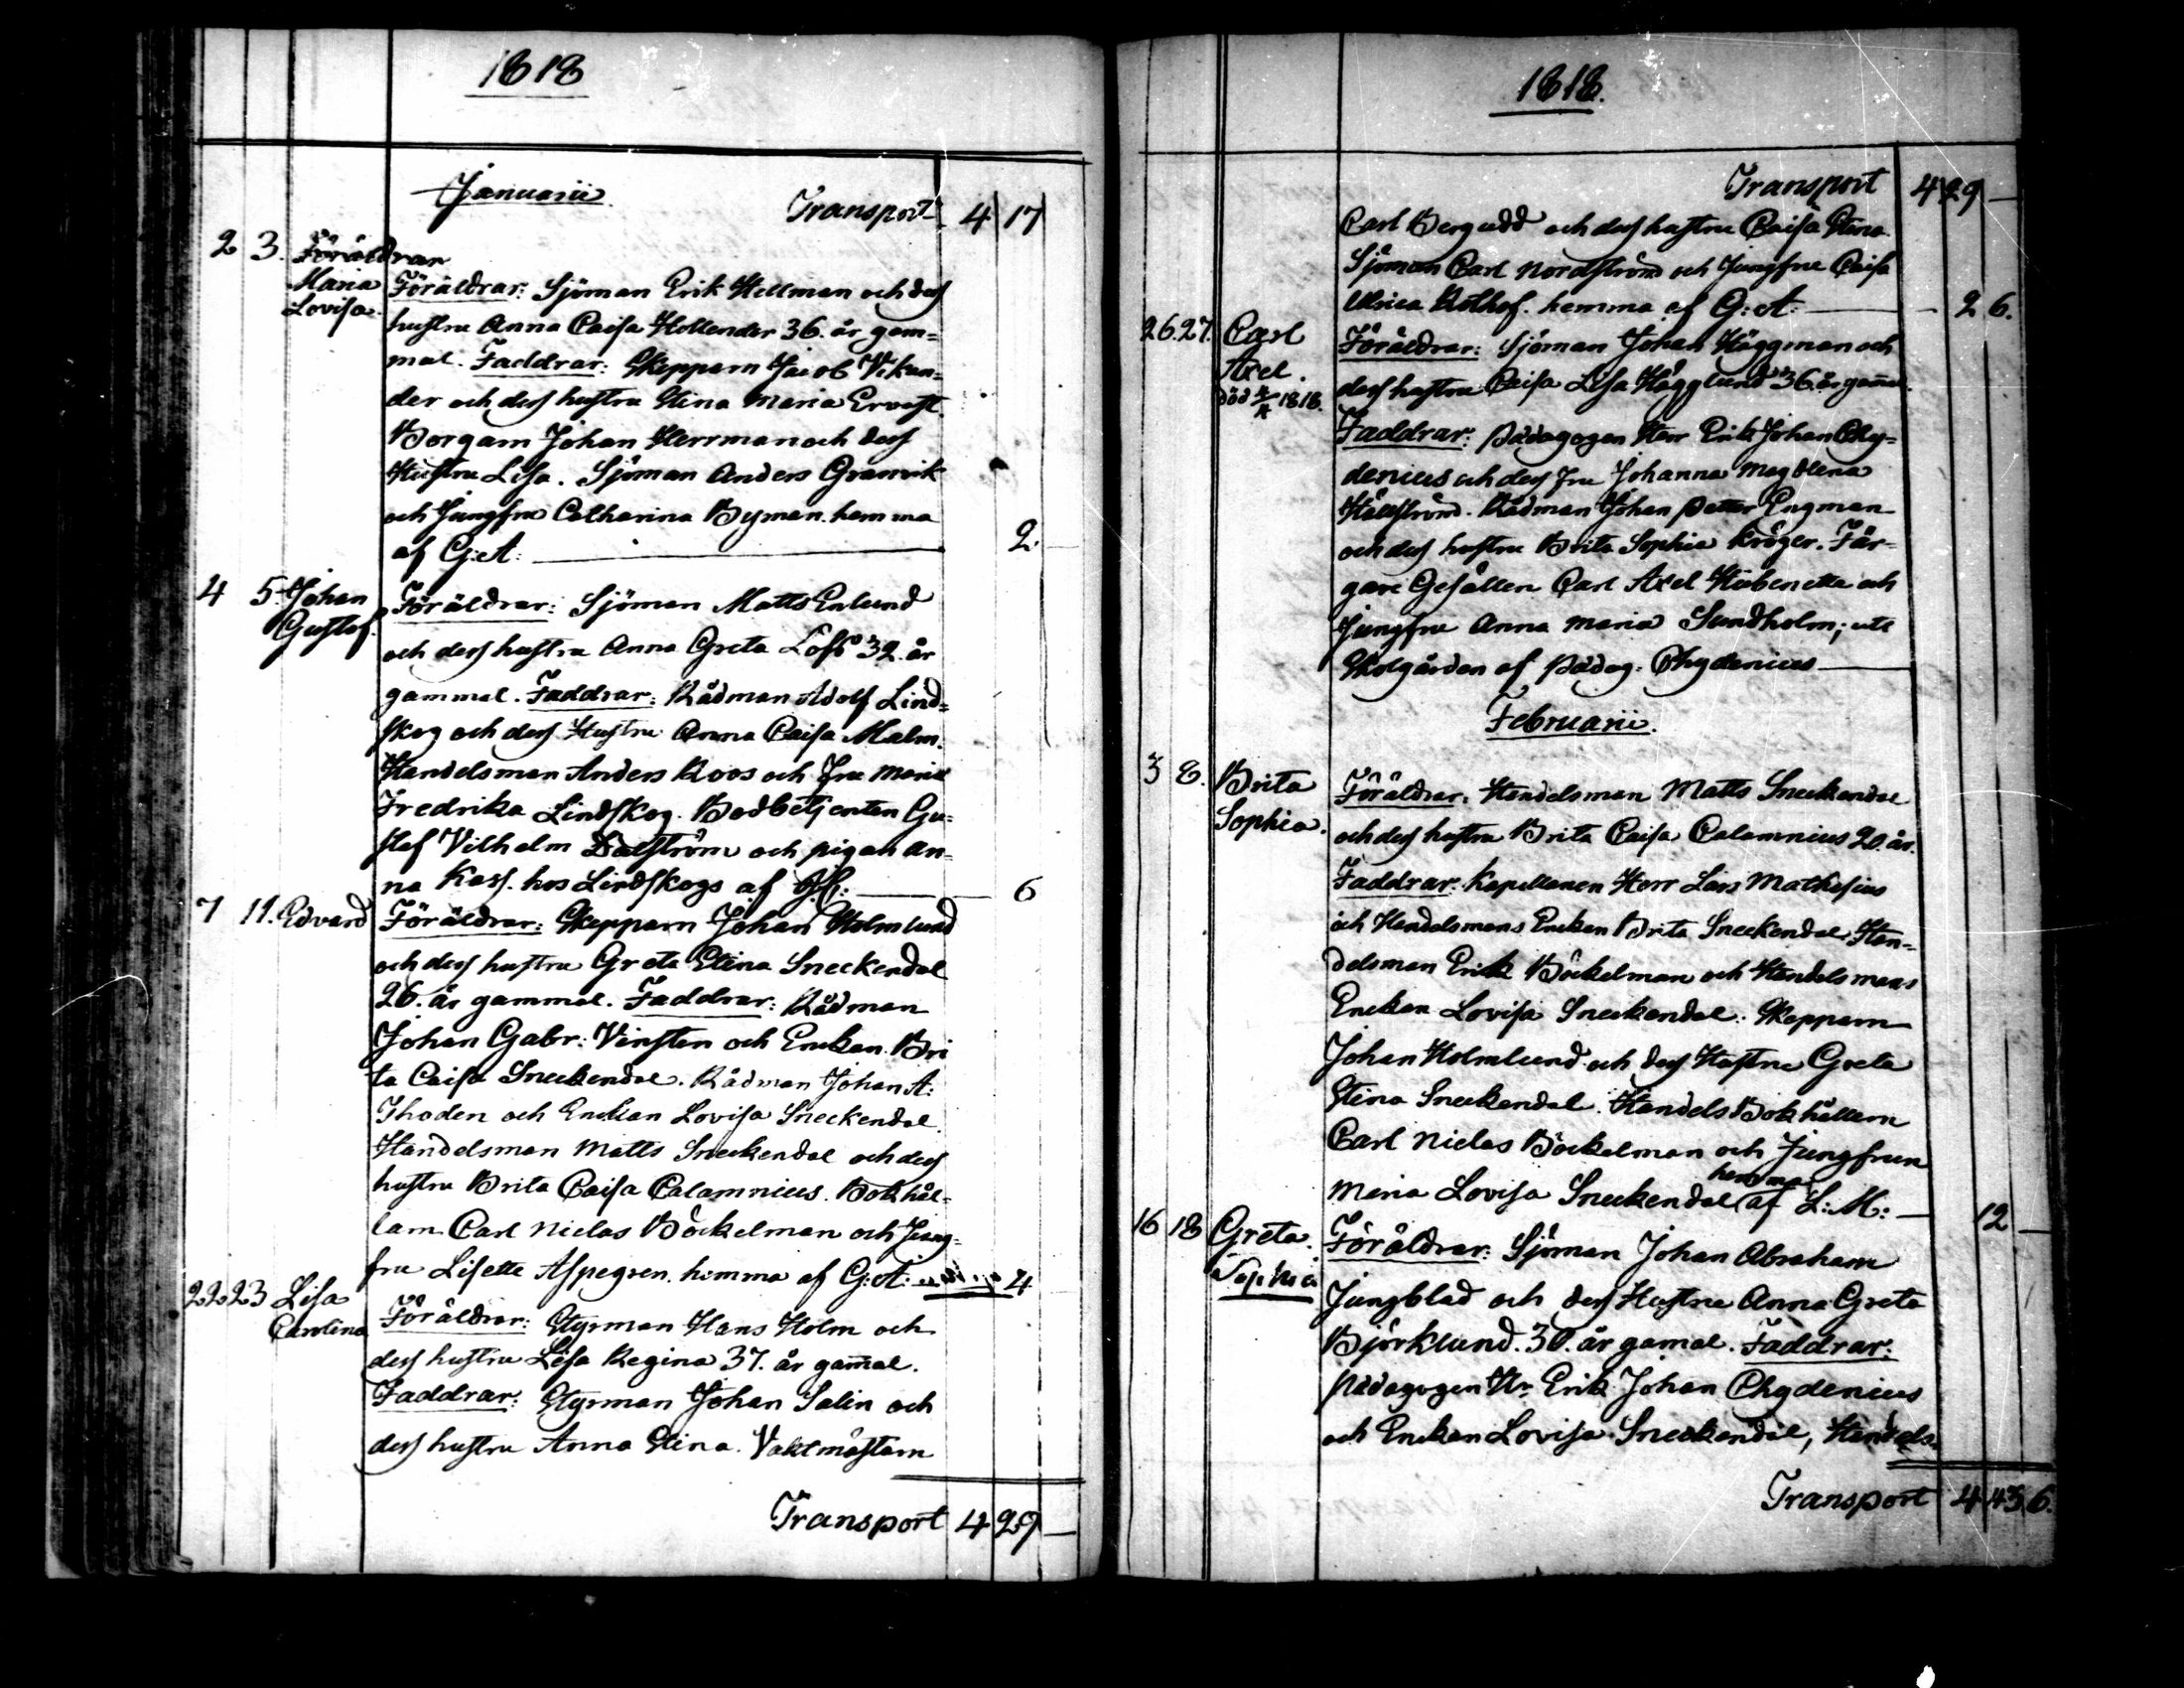 1818
Januarii
Transport 4 17
2 3. Föräldrar
Maria Lovisa. Föräldrar: Sjöman Erik Hellman och dess
hustru Anna Caisa Hollender 36. år gam=
mal. Faddrar: Skepparn Jacob Vikan=
der och dess hustru Stina Maria Ervast.
Borgarn Johan Herrman och dess
Hustru Lisa. Sjöman Anders Granvik
och Jungfru Catharina Byman. hemma
af G: A: 2. —
4 5. Johan Gustaf. Föräldrar: Sjöman Matts Enlund
och dess hustru Anna Greta Löf 32. år
gammal. Faddrar: Rådman Adolf Lind=
skog och dess Hustru Anna Caisa Malm.
Handelsman Anders Roos och Fru Maria
Fredrika Lindskog. Bodbetjenten Gu=
staf Vilhelm Dalström och pigan An=
na Kass. hos Lindskogs af 6
7 11. Edvard Föräldrar: Skepparn Johan Holmlund
och dess hustru Greta Stina Sneckendal
26. år gammal. Faddrar: Rådman
Johan Gabr: Vinsten och Enckan. Bri
ta Caisa Sneckendal. Rådman Johan A:
Thoden och Enckan Lovisa Sneckendal.
Handelsman Matts Sneckendal och dess
hustru Brita Caisa Calamnius. Bokhål=
larn Carl Niclas Böckelman och Jung=
fru Lisette Aspegren. hemma af G: A: 4
22 23 Lisa Carolina Föräldrar: Styrman Hans Holm och
dess hustru Lisa Regina 37. år gamal.
Faddrar: Styrman Johan Salin och
dess hustru Anna Stina. Vaktmästarn
Transport 4 29 —
1818.
Transport 4 29 —
Carl Bergudd och dess hustru Caisa Stina
Sjöman Carl Nordström och Jungfru Caisa
Ulrica Rolhof. hemma af G: A: 2 6.
26. 27. Carl Axel. död 1818. Föräldrar: Sjöman Johan Häggman och
dess hustru Caisa Lisa Hägglund 36. år gamal.
Faddrar: Pädagogen Herr Erik Johan Chy=
denius och dess Fru Johanna Magdlena
Hällström. Rådman Johan Petter Engman
och dess hustru Brita Sophia Kröger. Fär=
gare Gesällen Carl Axel Hubenette och
Jungfru Anna Maria Sundholm; ute
Skolgården af Pädag: Chydenius —
Februarii.
3 8. Brita Sophia. Föräldrar: Handelsman Matts Sneckendal
och dess hustru Brita Caisa Calamnius 20. år.
Faddrar: Kapellanen Herr Lars Mathesius
och Handelsmans Enckan Brita Sneckendal. Han=
delsman Erik Böckelman och Handelsmans
Enckan Lovisa Sneckendal. Skepparn
Johan Holmlund och dess Hustru Greta
Stina Sneckendal. Handels Bokhållern
Carl Niclas Böckelman och Jungfrun
Maria Lovisa Sneckendal hemma af L: M: — 12 —
16 18 Greta Sophia Föräldrar: Sjöman Johan Abraham
Jungblad och dess Hustru Anna Greta
Björklund. 30. år gamal. Faddrar:
Pädagogen Hr Erik Johan Chydenius
och Enckan Lovisa Sneckendal, Handels=
Transport 4 43 6.